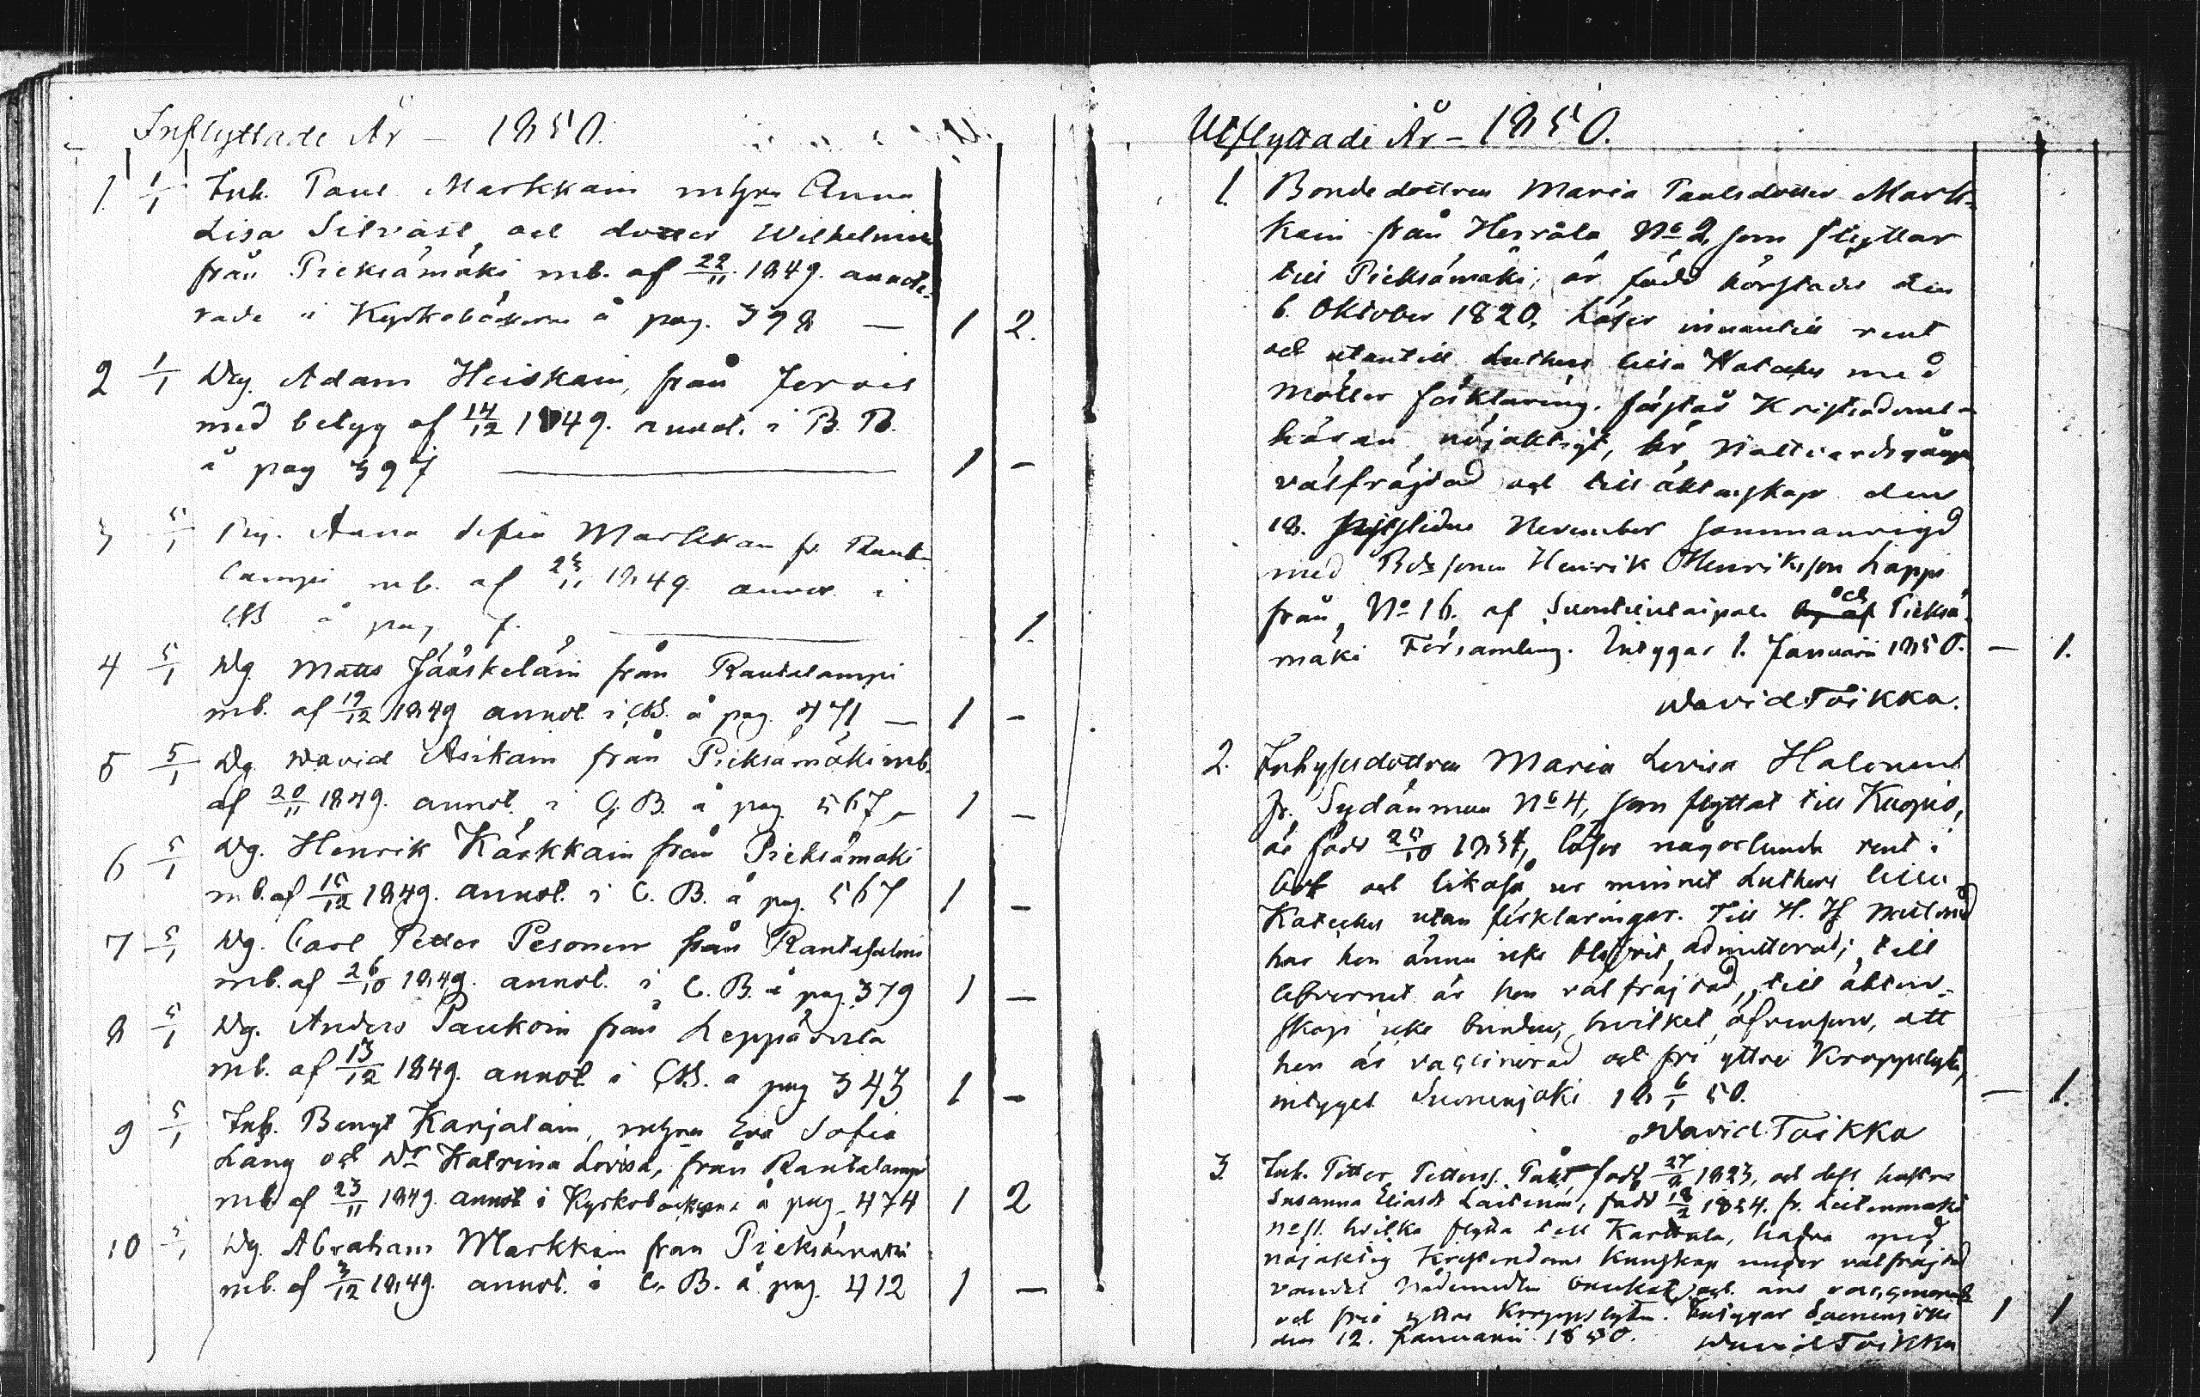 Inflyttade År – 1850.
1. 1/1 Inh. Paul Markkain m hu Anna
Lisa Silvast och dotter Wilhelmina
från Pieksämäki mb. af 22/11 1849. annote-
rade i Kyrkoböckerna å pag. 398 — 1 2.
2 1/1 Dg. Adam Heiskain, från Jorois
med betyg af 14/12 1849. annot. i B.
å pag 397 — 1 –
3 5/1 Pig. Anna Sofia Markkan fr. Rauta-
lampi mb. af 23/11 1849. annot. i
CB å pag — 1.
4 5/1 Dg. Matts Jääskeläin från Rautalampi
mb. af 19/12 1849 annot. i CB. å pag. 471 — 1 –
5 5/1 Dg. David Asikain från Pieksämäki mb.
af 20/11 1849. annot. i C. B. å pag. 567 – 1 –
6 5/1 Dg. Henrik Kärkkäin från Pieksämäki
mb. af 15/12 1849. annot. i C. B. å pag. 567 1 –
7 5/1 Dg. Carl Petter Pesonen från Rantasalmi
mb. af 26/10 1849. annot. i C. B. å pag. 379 1 –
8 5/1 Dg. Anders Paukoin från Leppävirta
mb. af 13/12 1849. annot i CB. å pag 343 1 –
9 5/1 Inh. Bengt Karjalain, m hu Eva Sofia
Lang och Dr Katrina Lovisa, från Rautalampi
mb. af 23/11 1849. annot i Kyrkoböckerna å pag. 474 1 2
10 5/1 Dg. Abraham Markkain från Pieksämäki
mb. af 3/12 1849. annot. i C. B. å pag. 412 1 –
Utflyttade År – 1850.
1. Bondedottren Maria Paulsdotter Mark-
kain från Herrala No 2, som flyttar
till Pieksämäki, är född härstädes den
6. Oktober 1820, Läser innantill rent
och utantill Luthers lilla Katekes med
Möllers förklaring. förstår Kristendoms-
läran nöjaktigt, är Nattvardsgången
välfräjdad och till äktenskap den
18. sistlidne November sammanvigd
med Bdesonen Henrik Henriksson Lappi
från No 16. af Suontientaipale och Pieksä-
mäki Församling. Intygar 1. Januarii 1850. — 1.
David Toikka.
2. Inhysesdottren Maria Lovisa Halonen
fr. Sydänmaa No 4, som flyttat till Kuopio,
är född 25/10 1834, läser någorlunda rent i
bok och likaså ur minnet Luthers lilla
Katekes utan förklaringar. Till H. H. Nattvard
har hon ännu icke blifvit admitterad; till
lefvernet är hon välfräjdad, till äkten-
skap icke bunden, hvilket, äfvensom, att
hon är vaccinerad och fri yttre Kroppslyten,
intygget Suonenjoki 18 6/1 50. — 1.
David Toikka
3. Inh. Petter Petterss. född 27/2 1823, och dess hustru
Susanna Eliasdr Laitinen, född 18/2 1824. fr. Lietenmäki
No 11. hvilka flytta till Karttula, hafva med
nöjaktig Kristendoms Kunskap under välfräjdad
vandel Nådemedlen brukat och äro vaccinerade
och fria yttre Kroppslyten. Intygar Suonenjoki 1 1
den 12. Januarii 1850. David Toikka